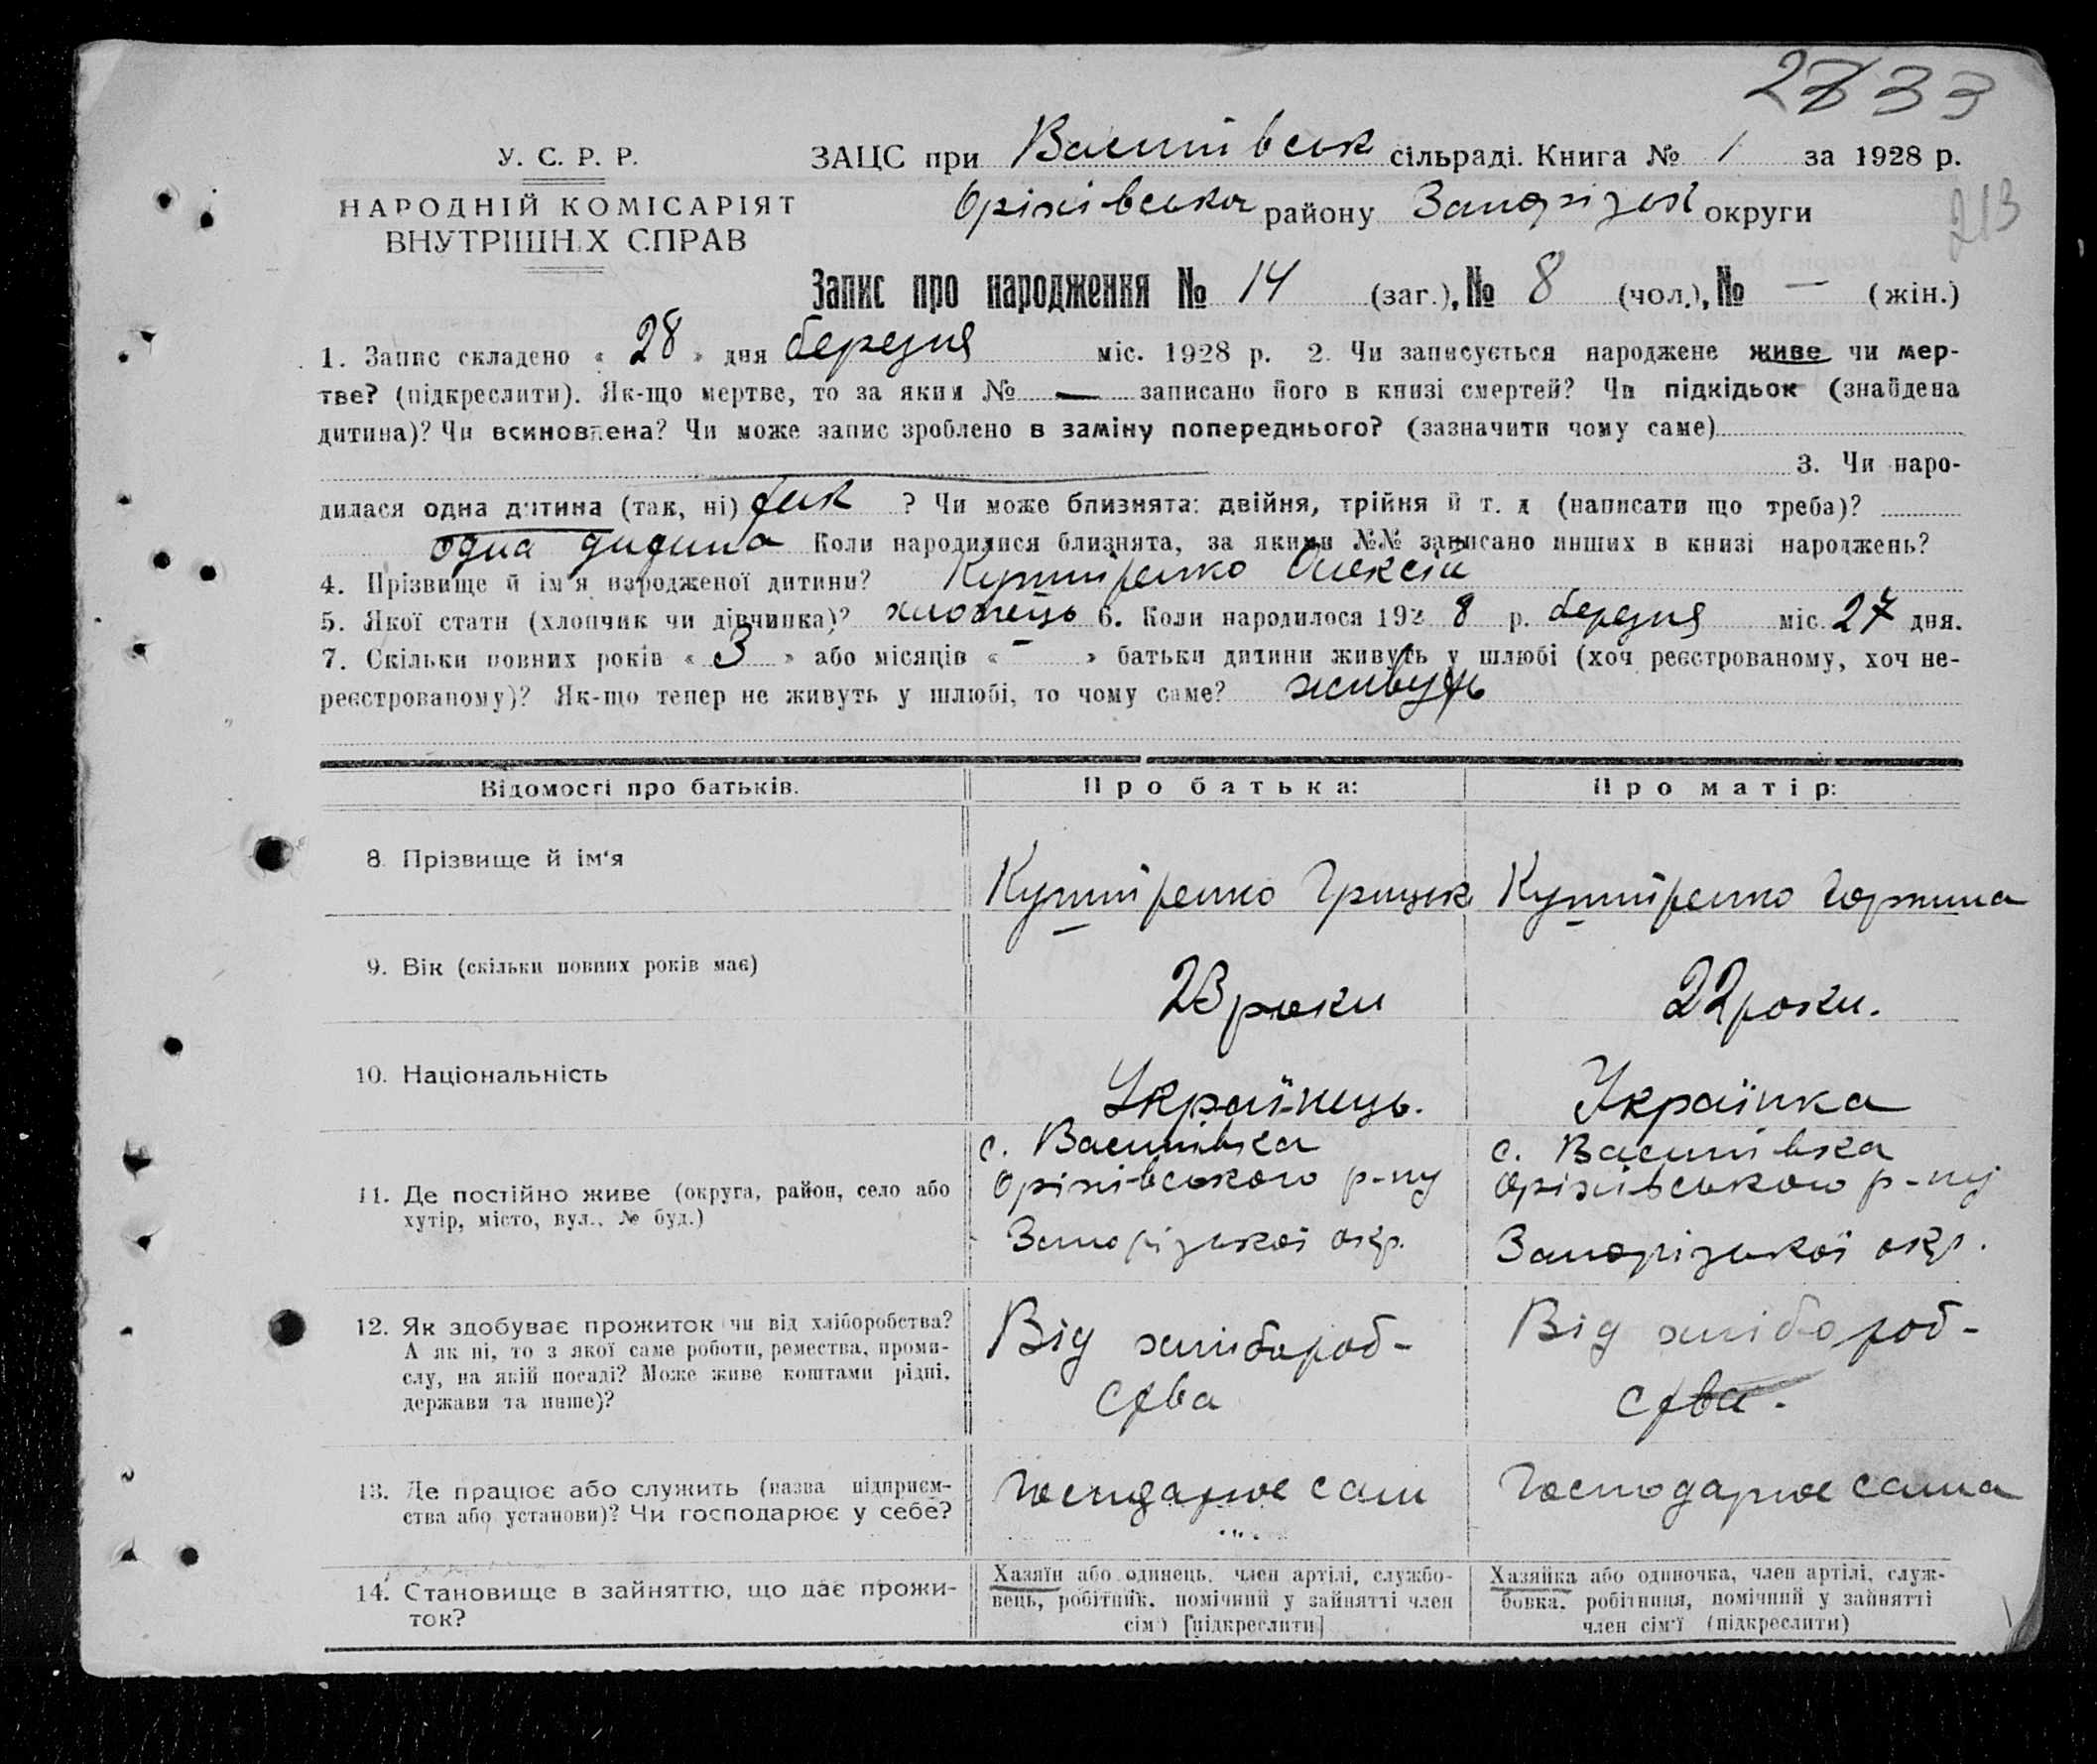 2733
У. С. Р. Р.
ЗАЦС при Василівськ сільраді. Книга № 1 за 1928 р.
НАРОДНІЙ КОМІСАРІЯТ
ВНУТРІШНІХ СПРАВ
Оріхівська району Запорізьк округи
213
Запис про народження № 14 (заг.), № 8 (чол.), № — (жін.)
1. Запис складено « 28 » дня березня міс. 1928 р. 2. Чи записується народжене живе чи мер-
тве? (підкреслити). Як-що мертве, то за яким № — записано його в книзі смертей? Чи підкідьок (знайдена
дитина)? Чи всиновлена? Чи може запис зроблено в заміну попереднього? (зазначити чому саме)
3. Чи наро-
дилася одна дитина (так, ні) так ? Чи може близнята: двійня, трійня й т. д (написати що треба)?
одна дитина Коли народилися близнята, за якими №№ записано инших в книзі народжень?
4. Прізвище й ім'я народженої дитини? Олексій
5. Якої стати (хлопчик чи дівчинка)? хлопець 6. Коли народилося 192 8 р. березня міс. 27 дня.
7. Скільки повних років « 3 » або місяців « - » батьки дитини живуть у шлюбі (хоч реєстрованому, хоч не-
реєстрованому)? Як-що тепер не живуть у шлюбі, то чому саме? живуть
Відомості про батьків. Про батька: Про матір:
8. Прізвище й ім'я
Грицьк
9. Вік (скільки повних років має)
23 роки 22 роки.
10. Національність
Українець. Українка
11. Де постійно живе (округа, район, село або
хутір, місто, вул., № буд.)
с. Василівка
Оріхівського р-ну
Запорізької окр.
с. Василівка
Оріхівського р-ну
Запорізької окр.
12. Як здобуває прожиток чи від хліборобства?
А як ні, то з якої саме роботи, ремества, проми-
слу, на якій посаді? Може живе коштами рідні,
держави та инше)?
Від хлібороб-
ства
Від хлібороб-
ства.
13. Де працює або служить (назва підприєм-
ства або установи)? Чи господарює у себе?
Господарює сам
Господарює сама
14. Становище в зайняттю, що дає прожи-
ток?
Хазяїн або одинець, член артілі, службо-
вець, робітник, помічний у зайнятті член
сім'ї [підкреслити]
Хазяйка або одиночка, член артілі, служ-
бовка, робітниця, помічний у зайнятті
член сім'ї (підкреслити)